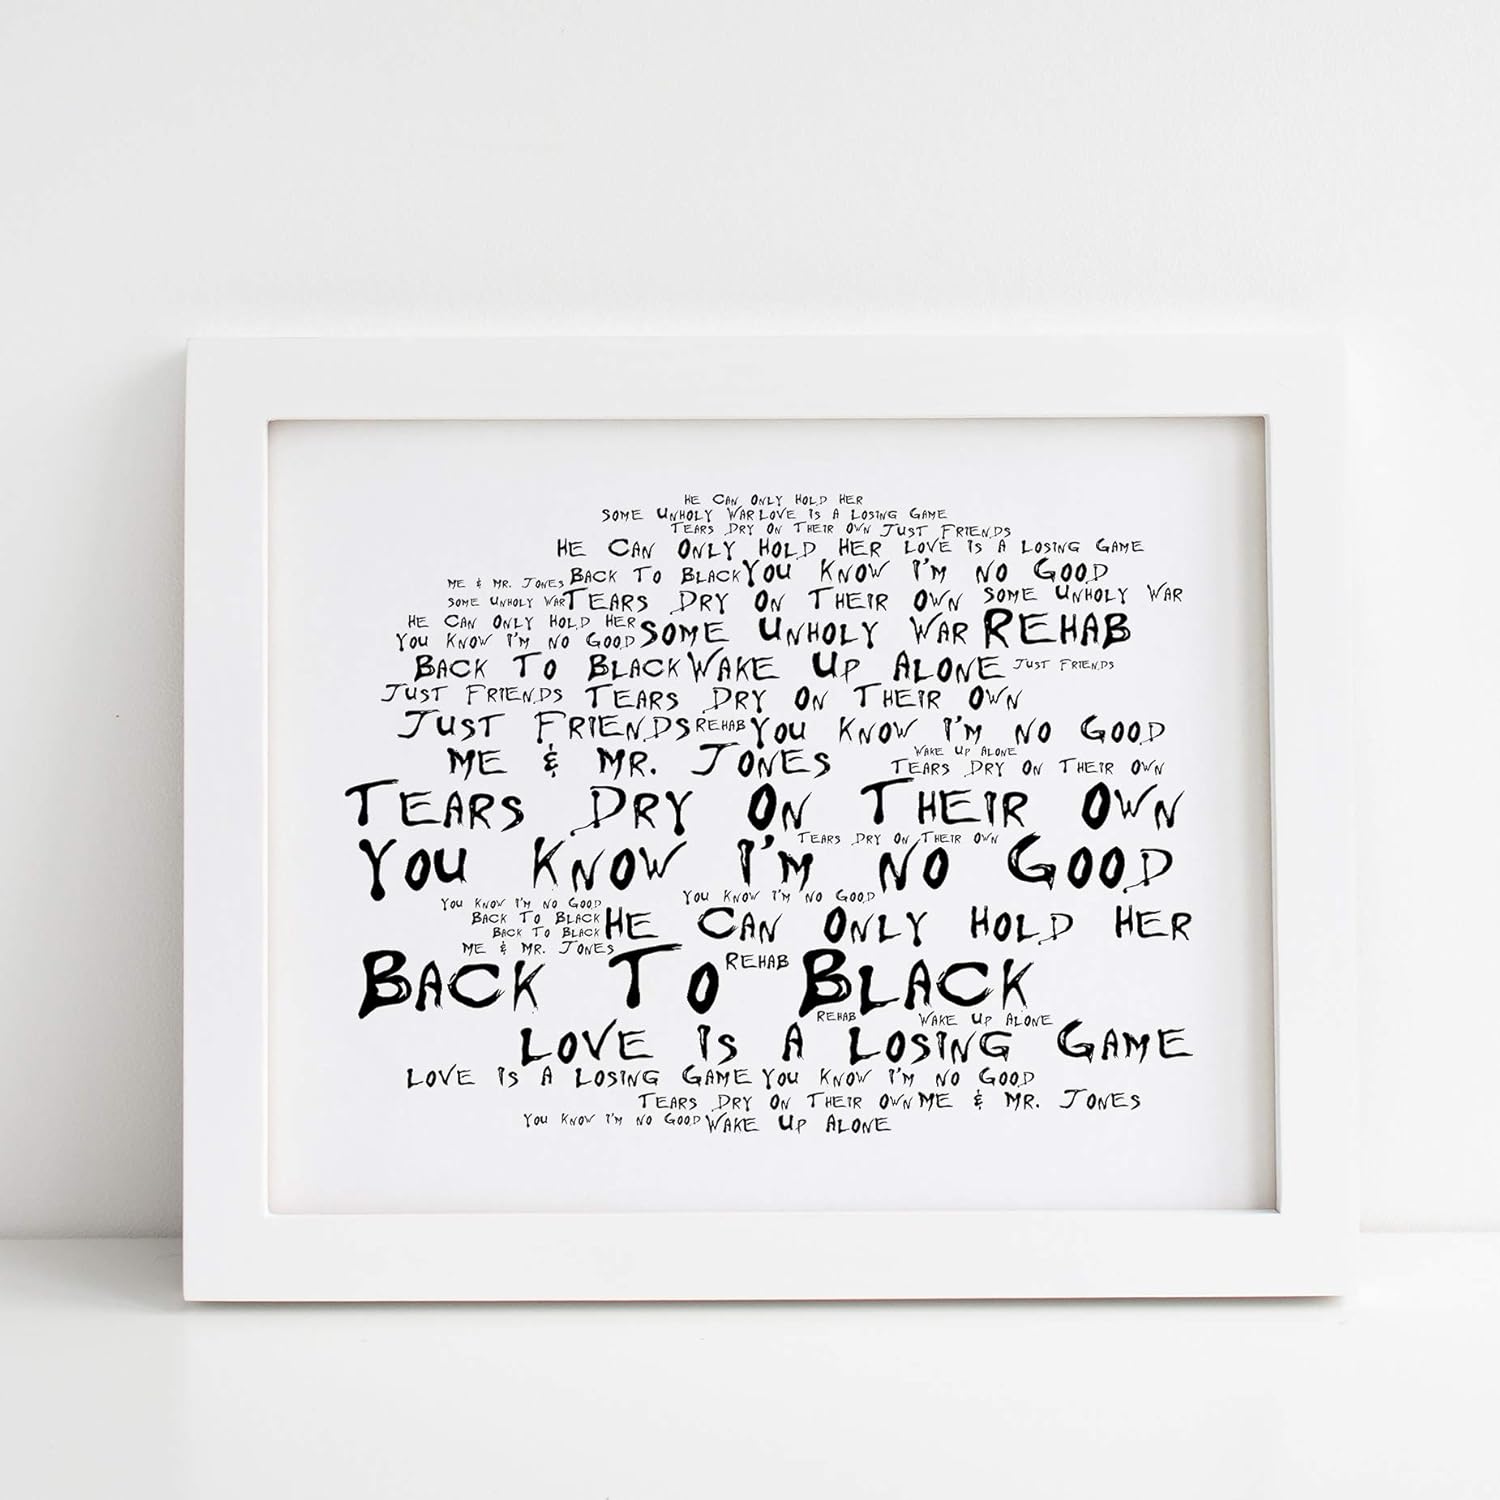 HE CAN ONLY HOLD HER
SOME UNHOLY WAR LOVE IS A LOSING GAME
TEARS DRY ON THEIR OWN JUST FRIENDS
HE CAN ONLY HOLD HER LOVE IS A LOSING GAME
ME & MR. JONES BACK TO BLACK YOU KNOW I'M NO GOOD
SOME UNHOLY WAR TEARS DRY ON THEIR OWN SOME UNHOLY WAR
HE CAN ONLY HOLD HER
YOU KNOW I'M NO GOOD SOME UNHOLY WAR REHAB
BACK TO BLACK WAKE UP ALONE JUST FRIENDS
JUST FRIENDS TEARS DRY ON THEIR OWN
JUST FRIENDS REHAB YOU KNOW I'M NO GOOD
WAKE UP ALONE
ME & MR. JONES TEARS DRY ON THEIR OWN
TEARS DRY ON THEIR OWN
TEARS DRY ON THEIR OWN
YOU KNOW I'M NO GOOD
YOU KNOW I'M NO GOOD
YOU KNOW I'M NO GOOD
BACK TO BLACK HE CAN ONLY HOLD HER
BACK TO BLACK
ME & MR. JONES
REHAB
BACK TO BLACK
REHAB WAKE UP ALONE
LOVE IS A LOSING GAME
LOVE IS A LOSING GAME YOU KNOW I'M NO GOOD
TEARS DRY ON THEIR OWN ME & MR. JONES
YOU KNOW I'M NO GOOD WAKE UP ALONE